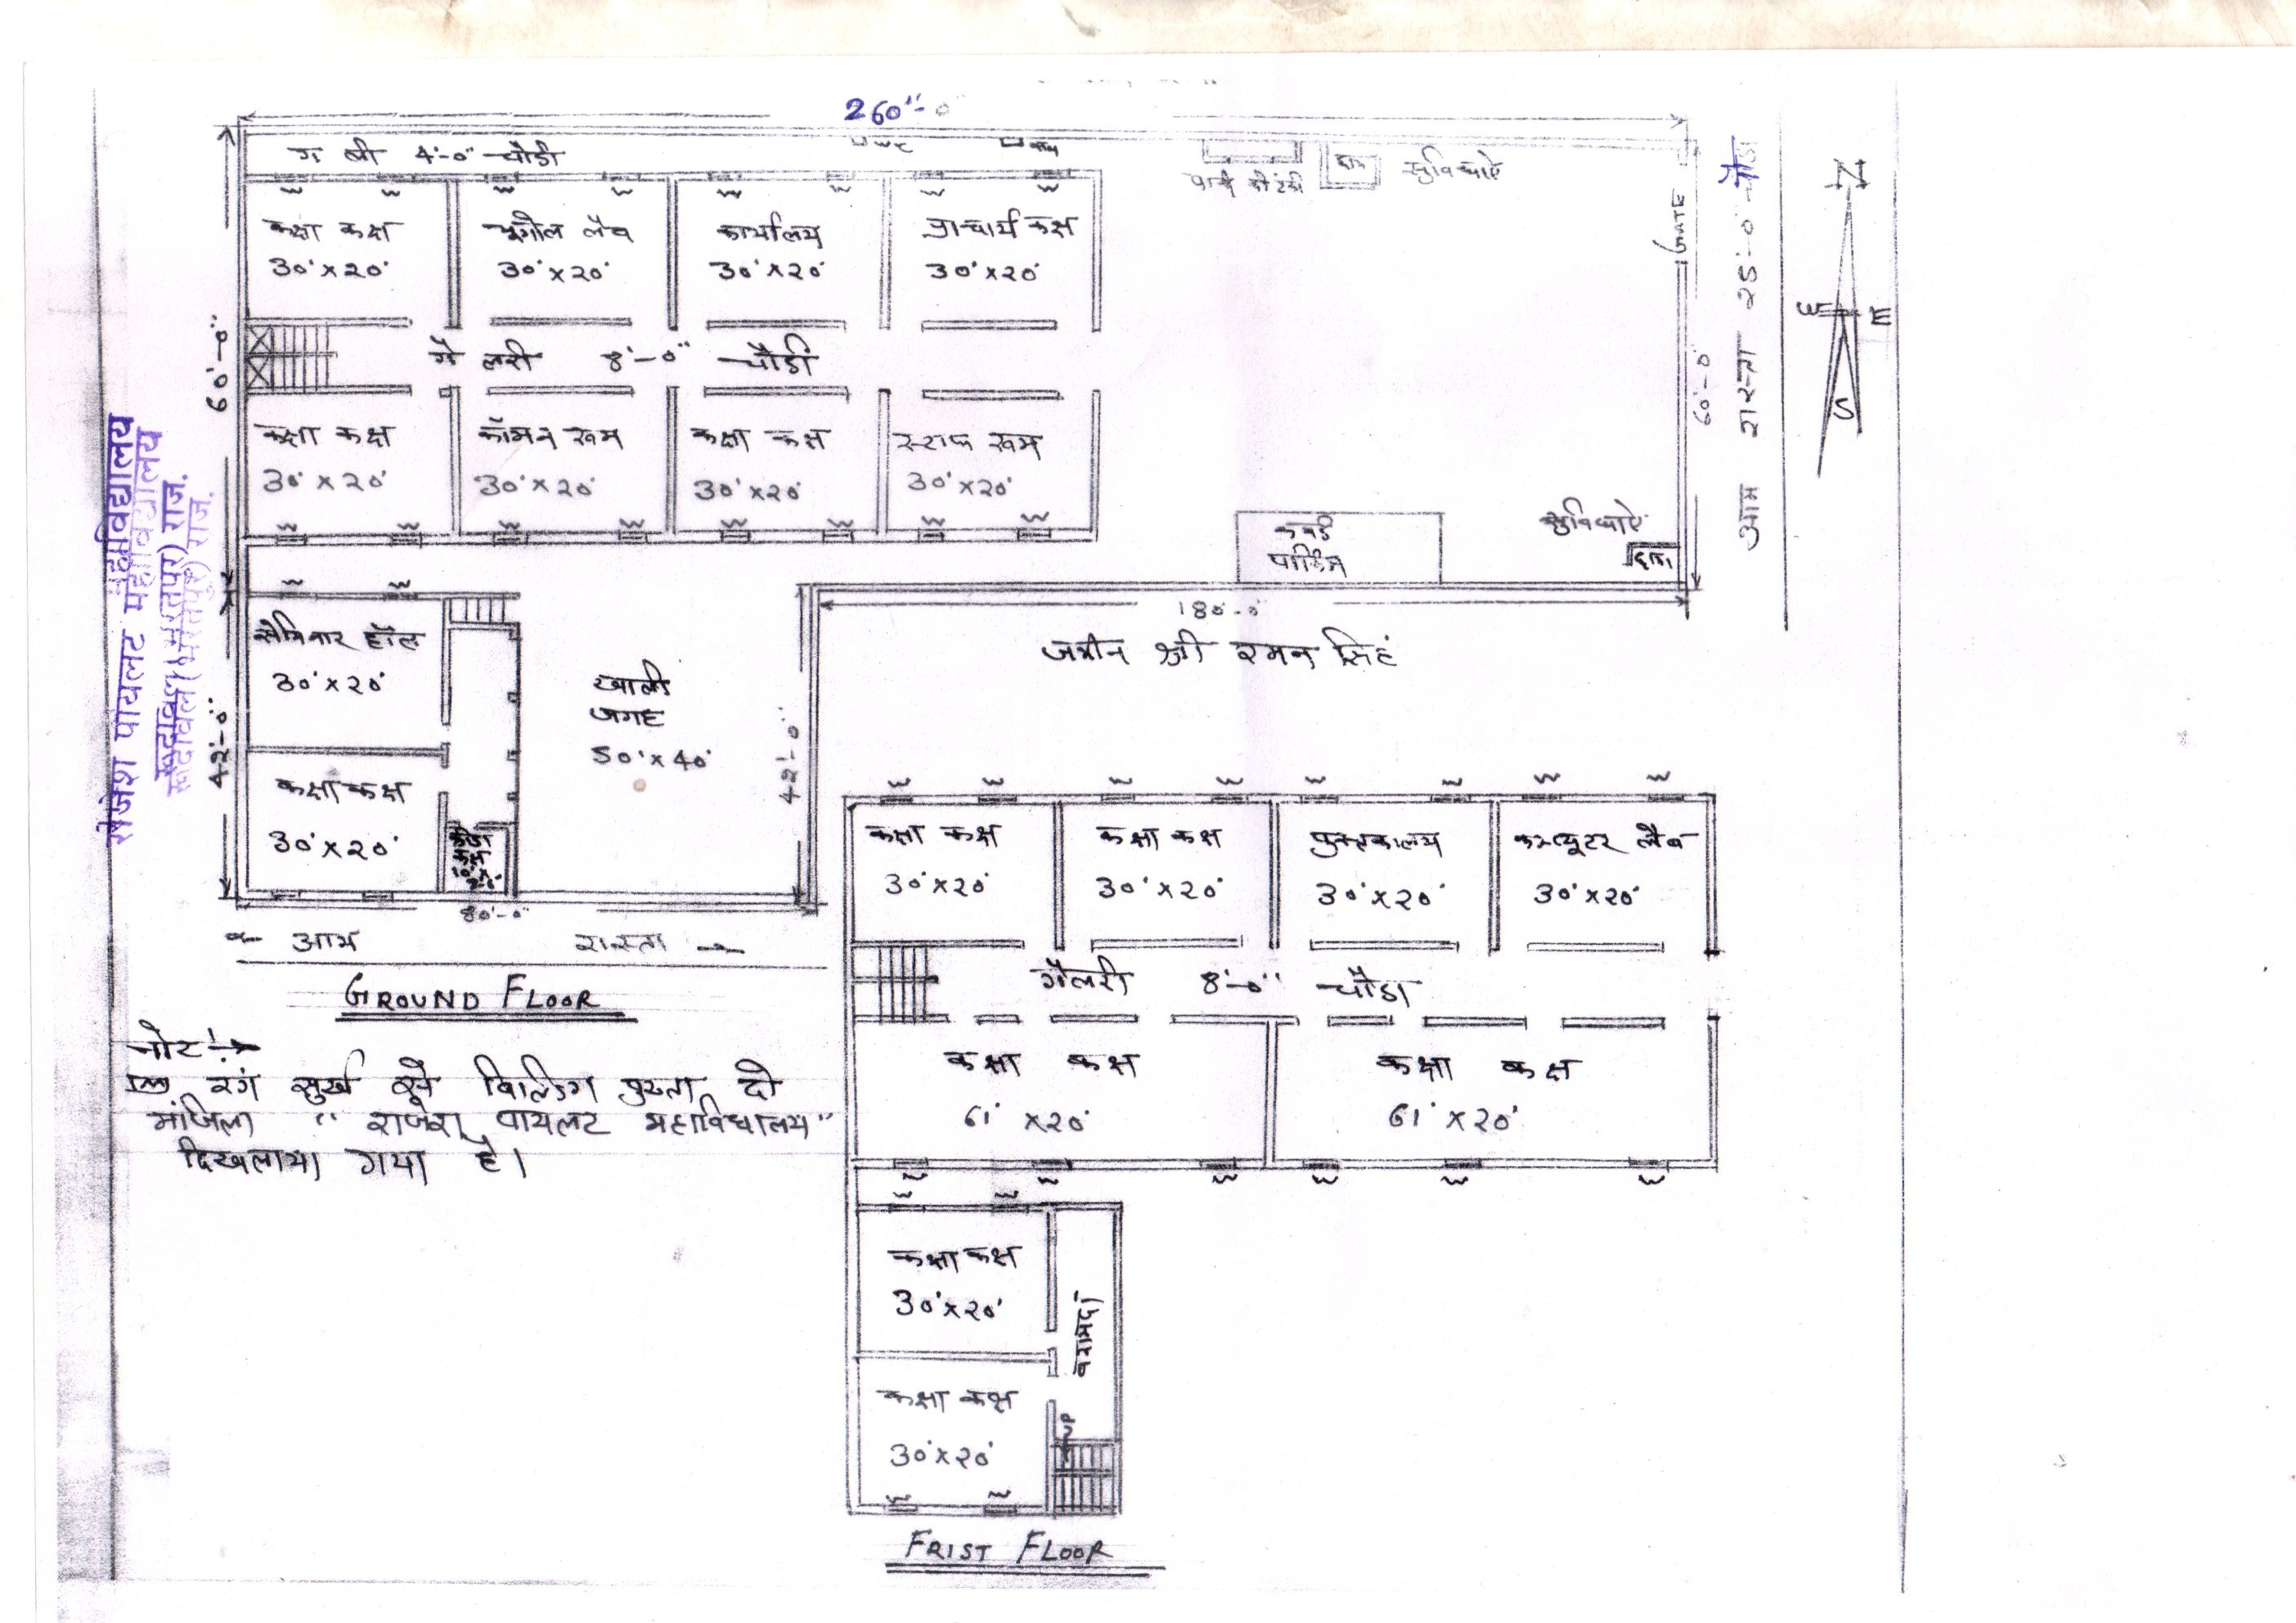 260'-0"
गली 4'-0" चौडी
पानी की टंकी
सुविधाऐं
GATE
आम रास्ता 25'-0" चौडा
N
W E
S
कक्षा कक्ष
30'x20'
भूगोल लैब
30'x20'
कार्यालय
30'x20'
प्राचार्य कक्ष
30'x20'
60'-0"
गैलरी 8'-0" चौडी
60'-0"
कक्षा कक्ष
30'x20'
कॉमन रूम
30'x20'
कक्षा कक्ष
30'x20'
स्टाफ रूम
30'x20'
पार्किंग
सुविधाऐं
180'-0"
जमीन श्री रमन सिहं
सेमिनार हॉल
30'x20'
खाली
जगह
50'x40'
42'-0"
42'-0"
कक्षा कक्ष
30'x20'
80'-0"
← आम रास्ता →
GROUND FLOOR
राजेश पायलट महाविद्यालय
कक्षा कक्ष
30'x20'
कक्षा कक्ष
30'x20'
पुस्तकालय
30'x20'
कम्प्यूटर लैब
30'x20'
गैलरी 8'-0" चौडा
कक्षा कक्ष
61'x20'
कक्षा कक्ष
61'x20'
नोट:→
रंग सुर्ख से बिल्डिंग पुख्ता दो
मंजिला "राजेश पायलट महाविधालय"
दिखलाया गया है।
कक्षा कक्ष
30'x20'
बरामदा
कक्षा कक्ष
30'x20'
UP
FRIST FLOOR